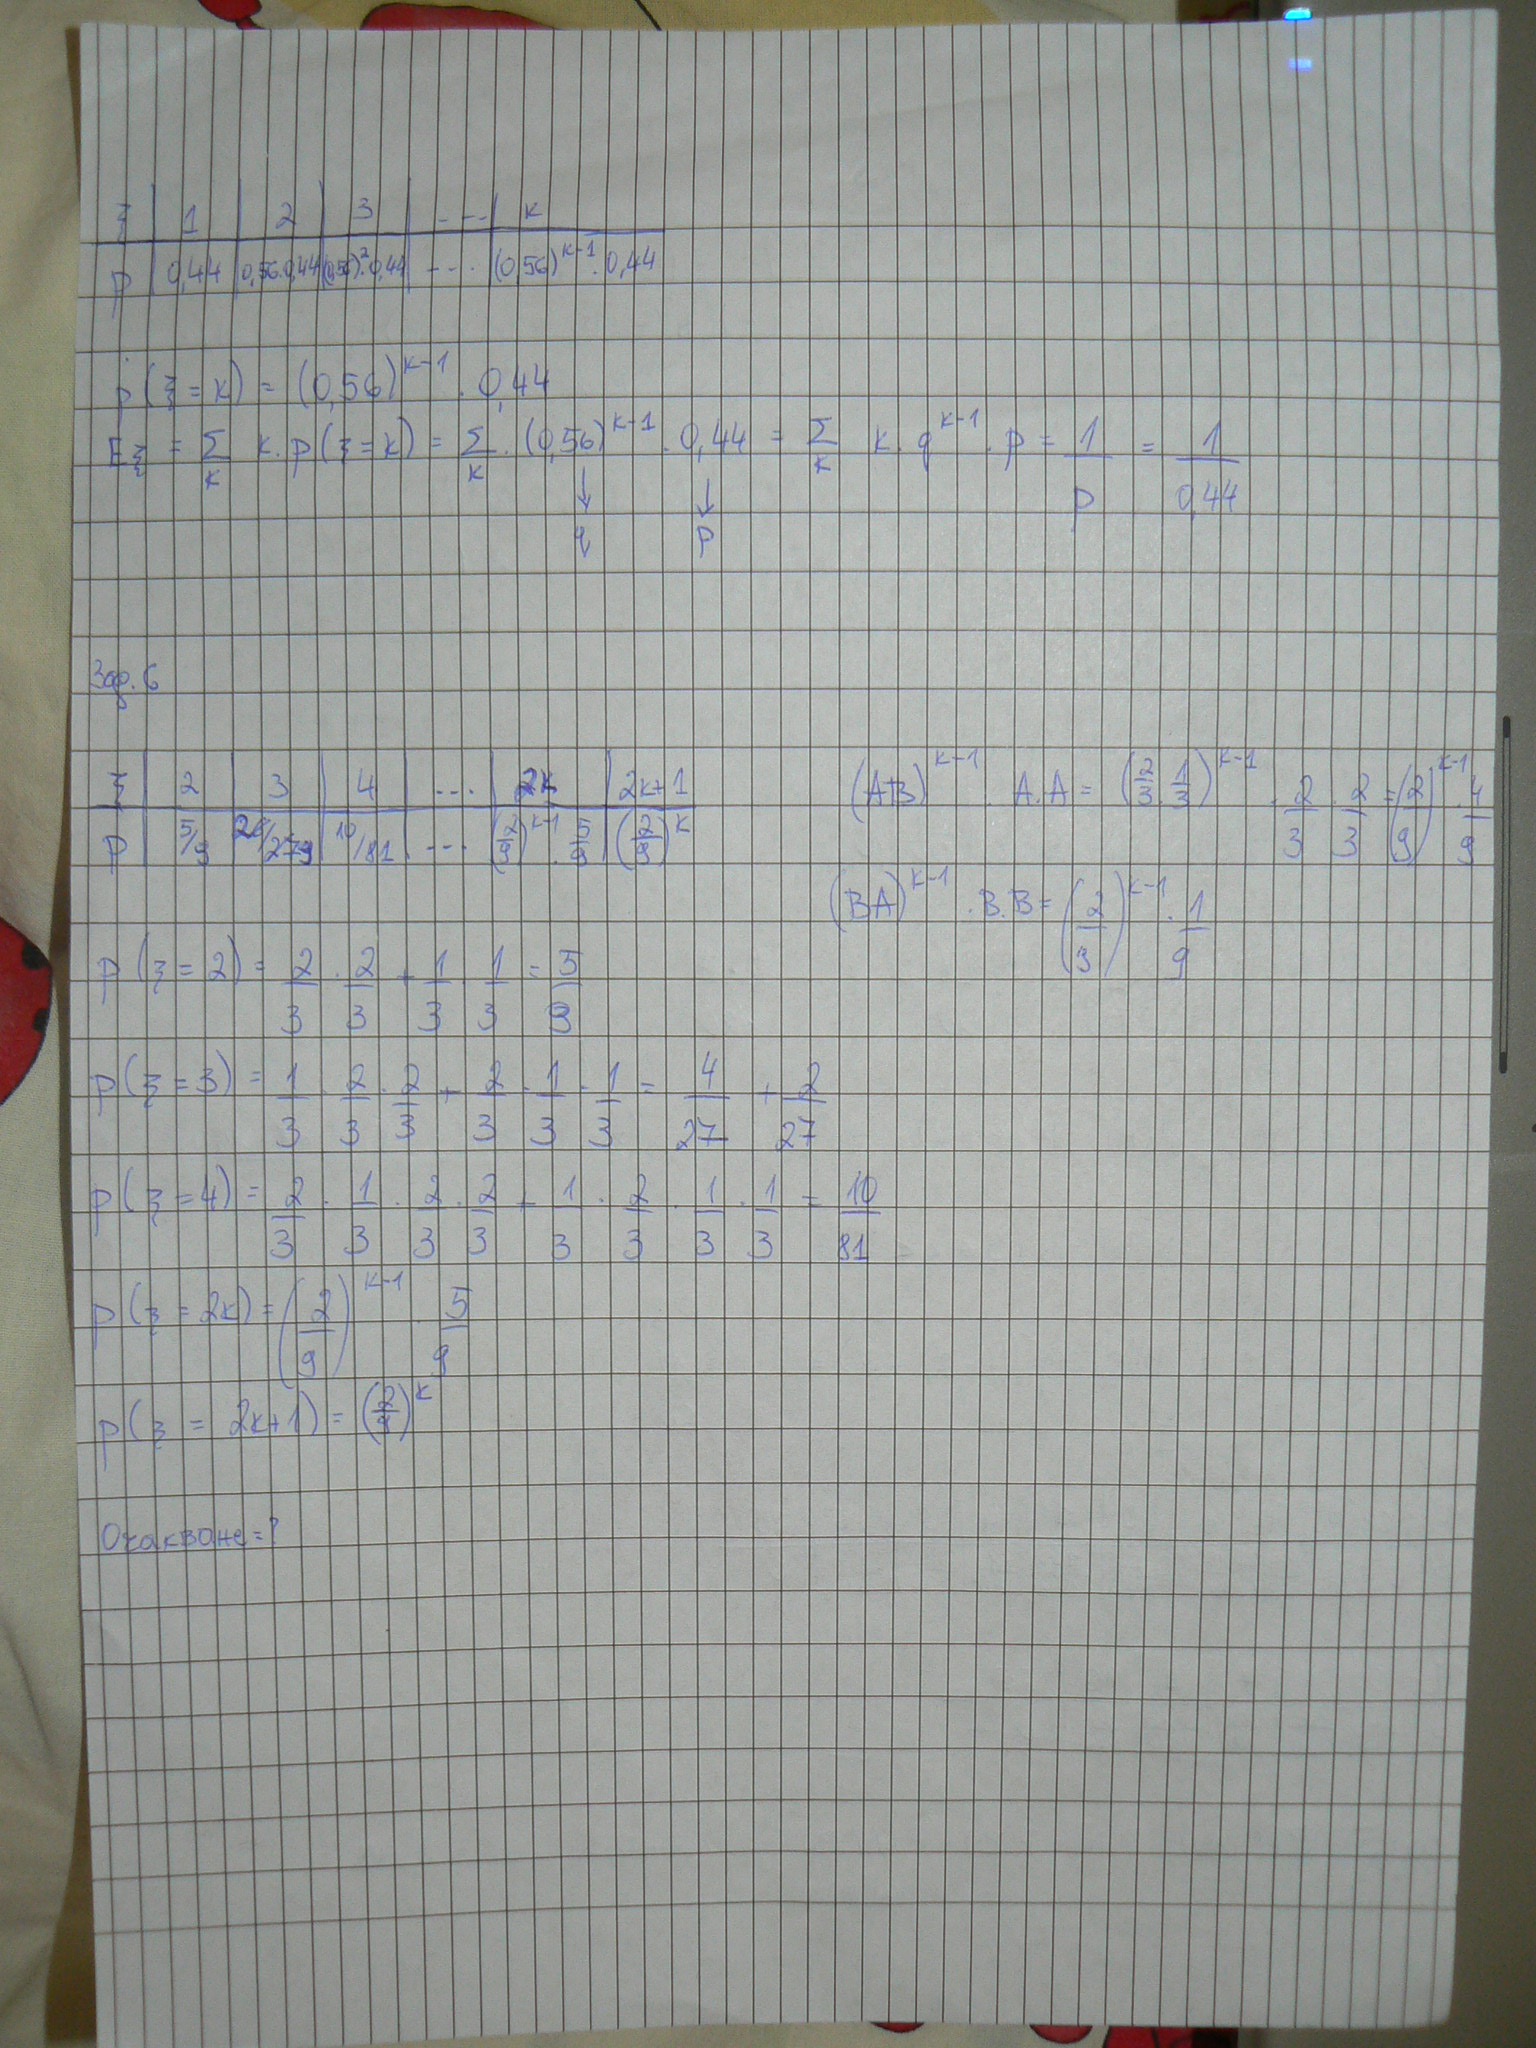 ξ | 1 | 2 | 3 | ... | k
p | 0,44 | 0,56.0,44 | (0,56)².0,44 | ... | (0,56)^(k-1) . 0,44
p(ξ=k) = (0,56)^(k-1) . 0,44
Eξ = Σ_k k.p(ξ=k) = Σ_k . (0,56)^(k-1) . 0,44 = Σ_k k.q^(k-1) . p = 1/p = 1/0,44
↓ ↓
q p
Зад. 6
ξ | 2 | 3 | 4 | ... | 2k | 2k+1
p | 5/9 | | 10/81 | ... | (2/9)^(k-1) . 5/9 | (2/9)^k
(AB)^(k-1) . A.A = (2/3 . 1/3)^(k-1) . 2/3 . 2/3 = (2/9)^(k-1) . 4/9
(BA)^(k-1) . B.B = (2/3)^(k-1) . 1/9
p(ξ=2) = 2/3 . 2/3 + 1/3 . 1/3 = 5/9
p(ξ=3) = 1/3 . 2/3 . 2/3 + 2/3 . 1/3 . 1/3 = 4/27 + 2/27
p(ξ=4) = 2/3 . 1/3 . 2/3 . 2/3 + 1/3 . 2/3 . 1/3 . 1/3 = 10/81
p(ξ=2k) = (2/9)^(k-1) . 5/9
p(ξ = 2k+1) = (2/9)^k
Очакване=?